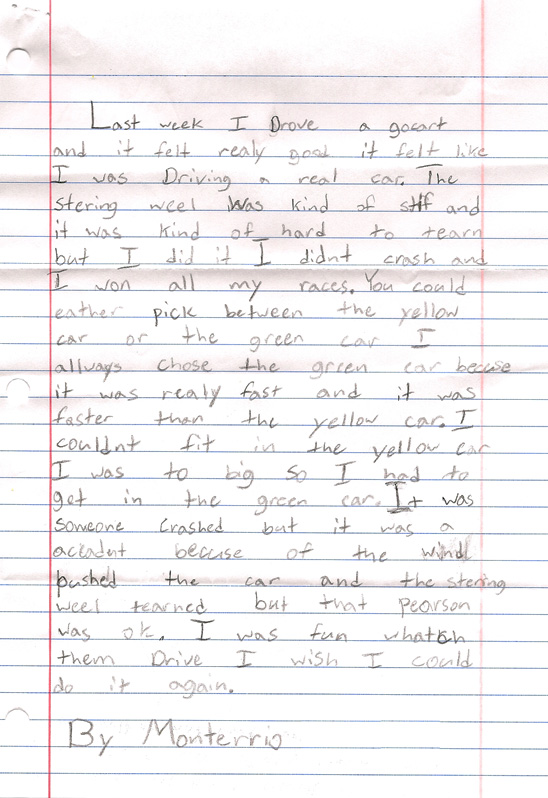 Last week I Drove a gocart
and it felt realy good it felt like
I was Driving a real car. The
stering weel was kind of stif and
it was kind of hard to tearn
but I did it I didnt crash and
I won all my races. You could
eather pick between the yellow
car or the green car I
allways chose the green car becuse
it was realy fast and it was
faster than the yellow car. I
couldnt fit in the yellow car
I was to big so I had to
get in the green car. It was
someone crashed but it was a
accadnt becuse of the wind
pushed the car and the stering
weel tearned but that pearson
was ok. I was fun whatch
them Drive I wish I could
do it again.
By Monterrio